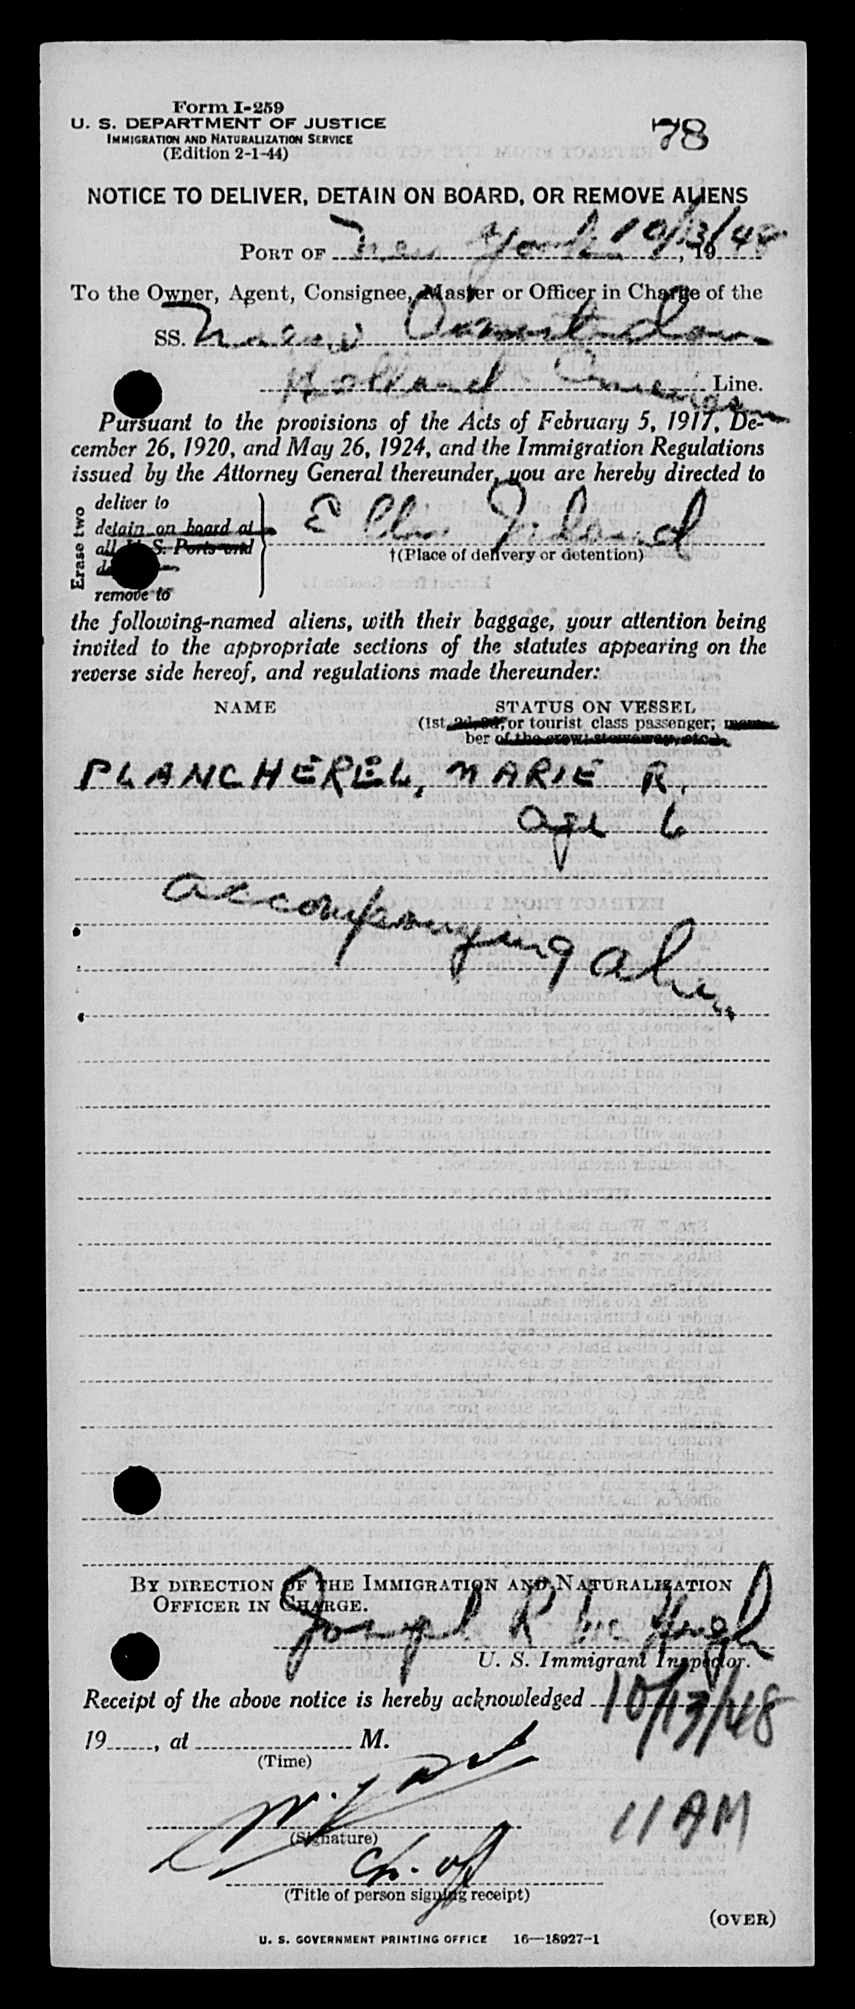 Form I-259
U. S. DEPARTMENT OF JUSTICE
IMMIGRATION AND NATURALIZATION SERVICE
(Edition 2-1-44)
78
NOTICE TO DELIVER, DETAIN ON BOARD, OR REMOVE ALIENS
PORT OF New York 10/13/48, 19
To the Owner, Agent, Consignee, Master or Officer in Charge of the
SS. Nieuw Amsterdam
Holland American Line.
Pursuant to the provisions of the Acts of February 5, 1917, De-
cember 26, 1920, and May 26, 1924, and the Immigration Regulations
issued by the Attorney General thereunder, you are hereby directed to
Erase two
deliver to
detain on board at
all U. S. Ports and
remove to
Ellis Island
†(Place of delivery or detention)
the following-named aliens, with their baggage, your attention being
invited to the appropriate sections of the statutes appearing on the
reverse side hereof, and regulations made thereunder:
NAME STATUS ON VESSEL
(1st, 2d, 3d, or tourist class passenger; mem-
ber of the crew; stowaway, etc.)
PLANCHEREL, MARIE R.
age 6
accompanying alien
BY DIRECTION OF THE IMMIGRATION AND NATURALIZATION
OFFICER IN CHARGE.
Joseph R McHugh
U. S. Immigrant Inspector.
Receipt of the above notice is hereby acknowledged 10/13/48
19, at M.
(Time)
11 AM
(Signature)
Ch. off
(Title of person signing receipt)
(OVER)
U. S. GOVERNMENT PRINTING OFFICE 16—18927-1